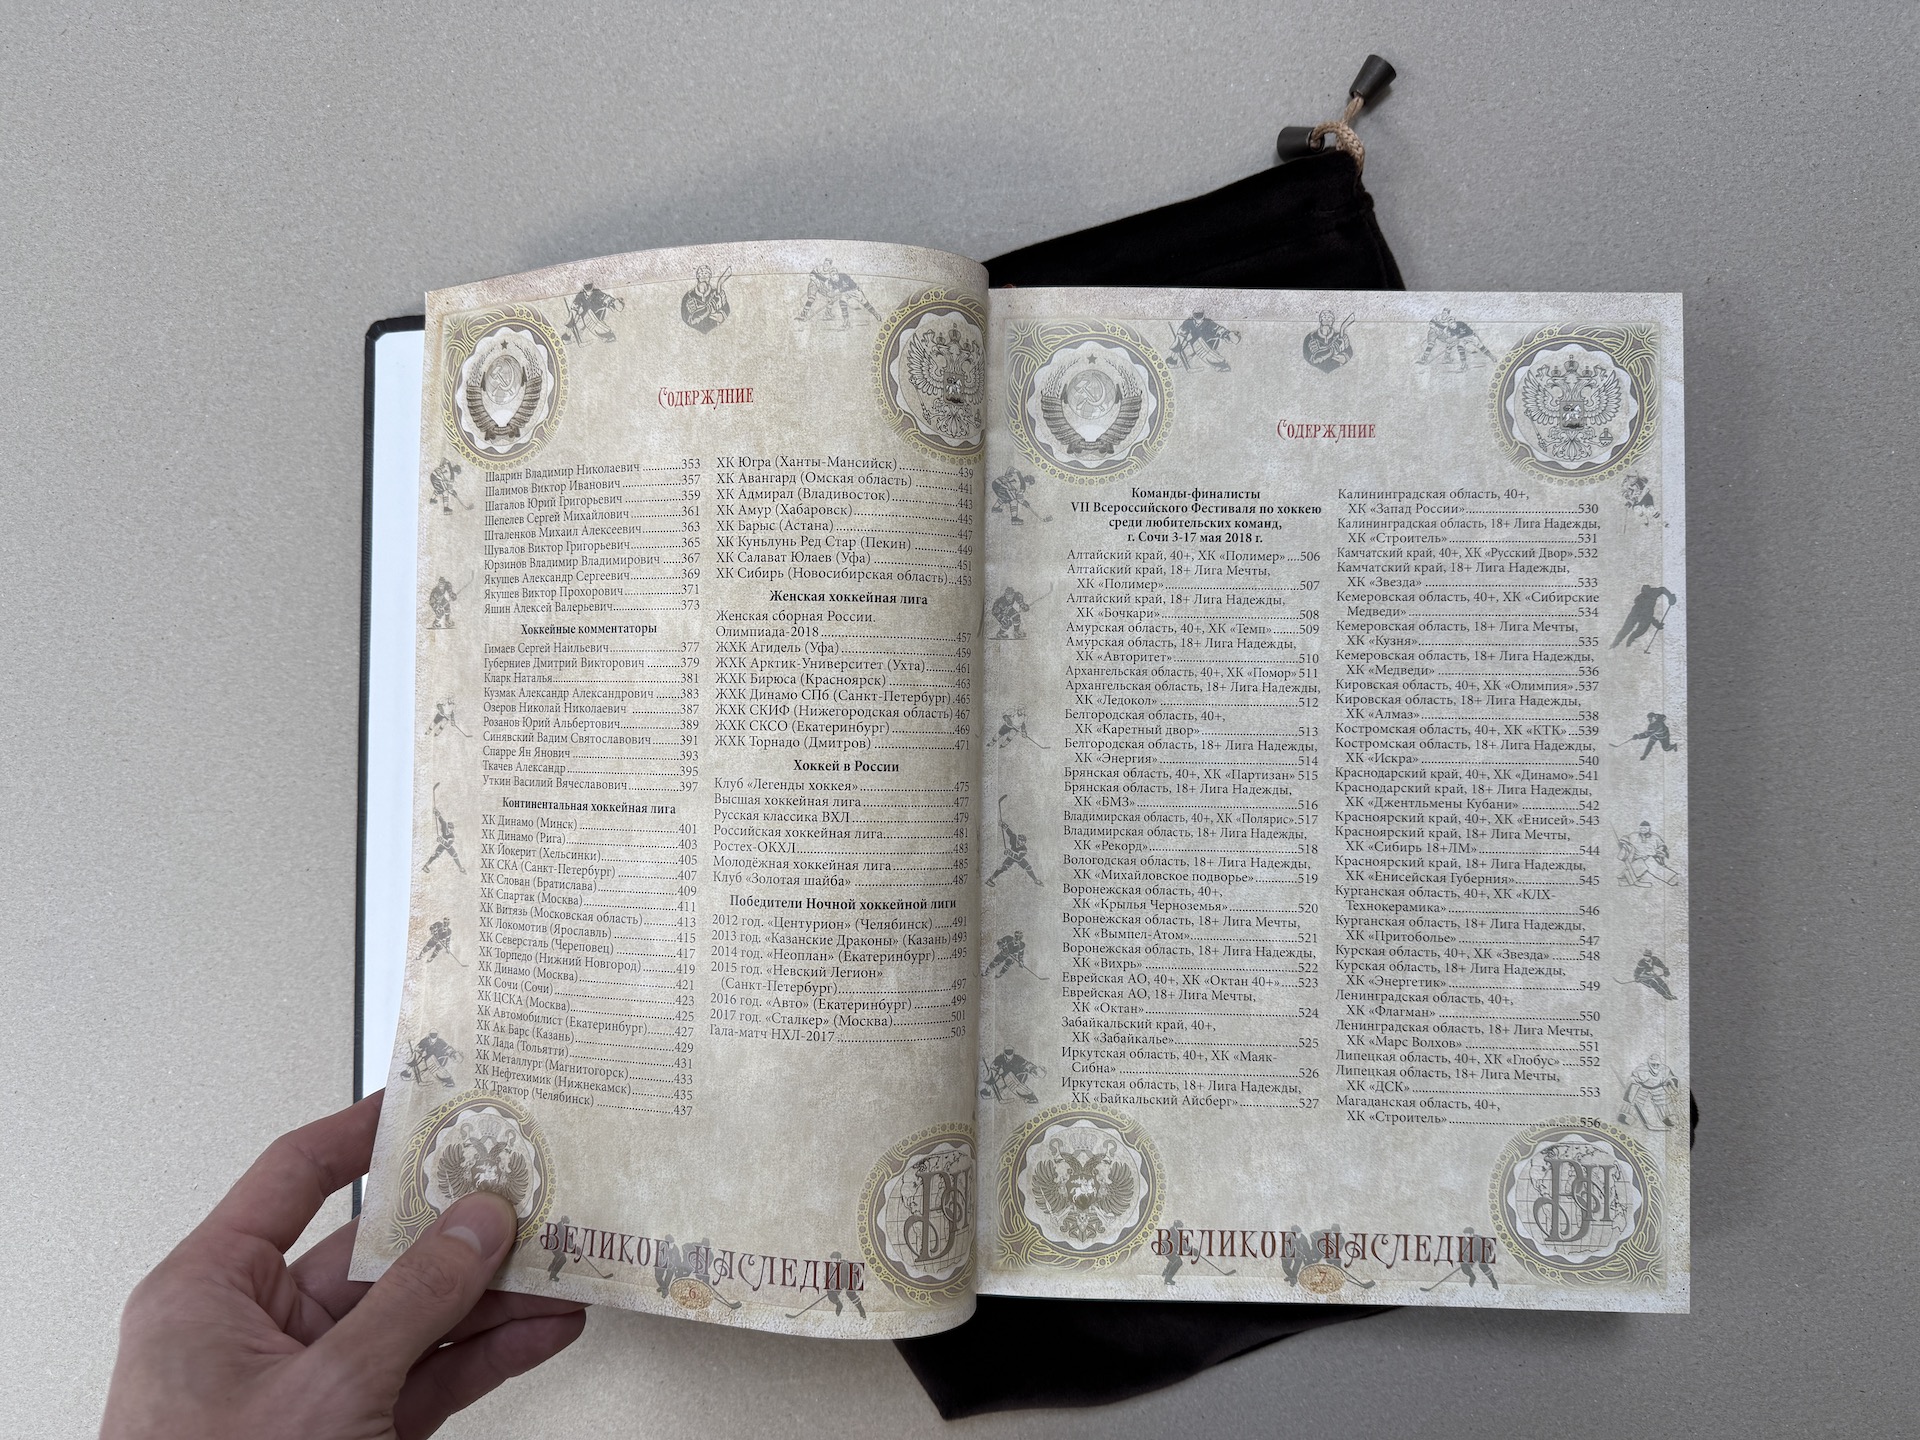 Содержание
Шадрин Владимир Николаевич ............353
Шалимов Виктор Иванович ............357
Шаталов Юрий Григорьевич ............359
Шепелев Сергей Михайлович ............361
Шталенков Михаил Алексеевич ............363
Шувалов Виктор Григорьевич ............365
Юрзинов Владимир Владимирович ......367
Якушев Александр Сергеевич ............369
Якушев Виктор Прохорович ............371
Яшин Алексей Валерьевич ............373
Хоккейные комментаторы
Гимаев Сергей Наильевич ............377
Губерниев Дмитрий Викторович ............379
Кларк Наталья ............381
Кузмак Александр Александрович ......383
Озеров Николай Николаевич ............387
Розанов Юрий Альбертович ............389
Синявский Вадим Святославович ......391
Спарре Ян Янович ............393
Ткачев Александр ............395
Уткин Василий Вячеславович ............397
Континентальная хоккейная лига
ХК Динамо (Минск) ............401
ХК Динамо (Рига) ............403
ХК Йокерит (Хельсинки) ............405
ХК СКА (Санкт-Петербург) ............407
ХК Слован (Братислава) ............409
ХК Спартак (Москва) ............411
ХК Витязь (Московская область) ............413
ХК Локомотив (Ярославль) ............415
ХК Северсталь (Череповец) ............417
ХК Торпедо (Нижний Новгород) ............419
ХК Динамо (Москва) ............421
ХК Сочи (Сочи) ............423
ХК ЦСКА (Москва) ............425
ХК Автомобилист (Екатеринбург) ............427
ХК Ак Барс (Казань) ............429
ХК Лада (Тольятти) ............431
ХК Металлург (Магнитогорск) ............433
ХК Нефтехимик (Нижнекамск) ............435
ХК Трактор (Челябинск) ............437
ХК Югра (Ханты-Мансийск) ............439
ХК Авангард (Омская область) ............441
ХК Адмирал (Владивосток) ............443
ХК Амур (Хабаровск) ............445
ХК Барыс (Астана) ............447
ХК Куньлунь Ред Стар (Пекин) ............449
ХК Салават Юлаев (Уфа) ............451
ХК Сибирь (Новосибирская область) ...453
Женская хоккейная лига
Женская сборная России.
Олимпиада-2018 ............457
ЖХК Агидель (Уфа) ............459
ЖХК Арктик-Университет (Ухта) ............461
ЖХК Бирюса (Красноярск) ............463
ЖХК Динамо СПб (Санкт-Петербург) .465
ЖХК СКИФ (Нижегородская область) 467
ЖХК СКСО (Екатеринбург) ............469
ЖХК Торнадо (Дмитров) ............471
Хоккей в России
Клуб «Легенды хоккея» ............475
Высшая хоккейная лига ............477
Русская классика ВХЛ ............479
Российская хоккейная лига ............481
Ростех-ОКХЛ ............483
Молодёжная хоккейная лига ............485
Клуб «Золотая шайба» ............487
Победители Ночной хоккейной лиги
2012 год. «Центурион» (Челябинск) ....491
2013 год. «Казанские Драконы» (Казань) 493
2014 год. «Неоплан» (Екатеринбург) ....495
2015 год. «Невский Легион»
(Санкт-Петербург) ............497
2016 год. «Авто» (Екатеринбург) ............499
2017 год. «Сталкер» (Москва) ............501
Гала-матч НХЛ-2017 ............503
ВЕЛИКОЕ НАСЛЕДИЕ
6
Содержание
Команды-финалисты
VII Всероссийского Фестиваля по хоккею
среди любительских команд,
г. Сочи 3-17 мая 2018 г.
Алтайский край, 40+, ХК «Полимер» ....506
Алтайский край, 18+ Лига Мечты,
ХК «Полимер» ............507
Алтайский край, 18+ Лига Надежды,
ХК «Бочкари» ............508
Амурская область, 40+, ХК «Темп» .......509
Амурская область, 18+ Лига Надежды,
ХК «Авторитет» ............510
Архангельская область, 40+, ХК «Помор» 511
Архангельская область, 18+ Лига Надежды,
ХК «Ледокол» ............512
Белгородская область, 40+,
ХК «Каретный двор» ............513
Белгородская область, 18+ Лига Надежды,
ХК «Энергия» ............514
Брянская область, 40+, ХК «Партизан» 515
Брянская область, 18+ Лига Надежды,
ХК «БМЗ» ............516
Владимирская область, 40+, ХК «Полярис» .517
Владимирская область, 18+ Лига Надежды,
ХК «Рекорд» ............518
Вологодская область, 18+ Лига Надежды,
ХК «Михайловское подворье» ............519
Воронежская область, 40+,
ХК «Крылья Черноземья» ............520
Воронежская область, 18+ Лига Мечты,
ХК «Вымпел-Атом» ............521
Воронежская область, 18+ Лига Надежды,
ХК «Вихрь» ............522
Еврейская АО, 40+, ХК «Октан 40+» ....523
Еврейская АО, 18+ Лига Мечты,
ХК «Октан» ............524
Забайкальский край, 40+,
ХК «Забайкалье» ............525
Иркутская область, 40+, ХК «Маяк-
Сибна» ............526
Иркутская область, 18+ Лига Надежды,
ХК «Байкальский Айсберг» ............527
Калининградская область, 40+,
ХК «Запад России» ............530
Калининградская область, 18+ Лига Надежды,
ХК «Строитель» ............531
Камчатский край, 40+, ХК «Русский Двор» .532
Камчатский край, 18+ Лига Надежды,
ХК «Звезда» ............533
Кемеровская область, 40+, ХК «Сибирские
Медведи» ............534
Кемеровская область, 18+ Лига Мечты,
ХК «Кузня» ............535
Кемеровская область, 18+ Лига Надежды,
ХК «Медведи» ............536
Кировская область, 40+, ХК «Олимпия» .537
Кировская область, 18+ Лига Надежды,
ХК «Алмаз» ............538
Костромская область, 40+, ХК «КТК» ...539
Костромская область, 18+ Лига Надежды,
ХК «Искра» ............540
Краснодарский край, 40+, ХК «Динамо» .541
Краснодарский край, 18+ Лига Надежды,
ХК «Джентльмены Кубани» ............542
Красноярский край, 40+, ХК «Енисей» .543
Красноярский край, 18+ Лига Мечты,
ХК «Сибирь 18+ЛМ» ............544
Красноярский край, 18+ Лига Надежды,
ХК «Енисейская Губерния» ............545
Курганская область, 40+, ХК «КЛХ-
Технокерамика» ............546
Курганская область, 18+ Лига Надежды,
ХК «Притоболье» ............547
Курская область, 40+, ХК «Звезда» ......548
Курская область, 18+ Лига Надежды,
ХК «Энергетик» ............549
Ленинградская область, 40+,
ХК «Флагман» ............550
Ленинградская область, 18+ Лига Мечты,
ХК «Марс Волхов» ............551
Липецкая область, 40+, ХК «Глобус» ...552
Липецкая область, 18+ Лига Мечты,
ХК «ДСК» ............553
Магаданская область, 40+,
ХК «Строитель» ............556
ВЕЛИКОЕ НАСЛЕДИЕ
7